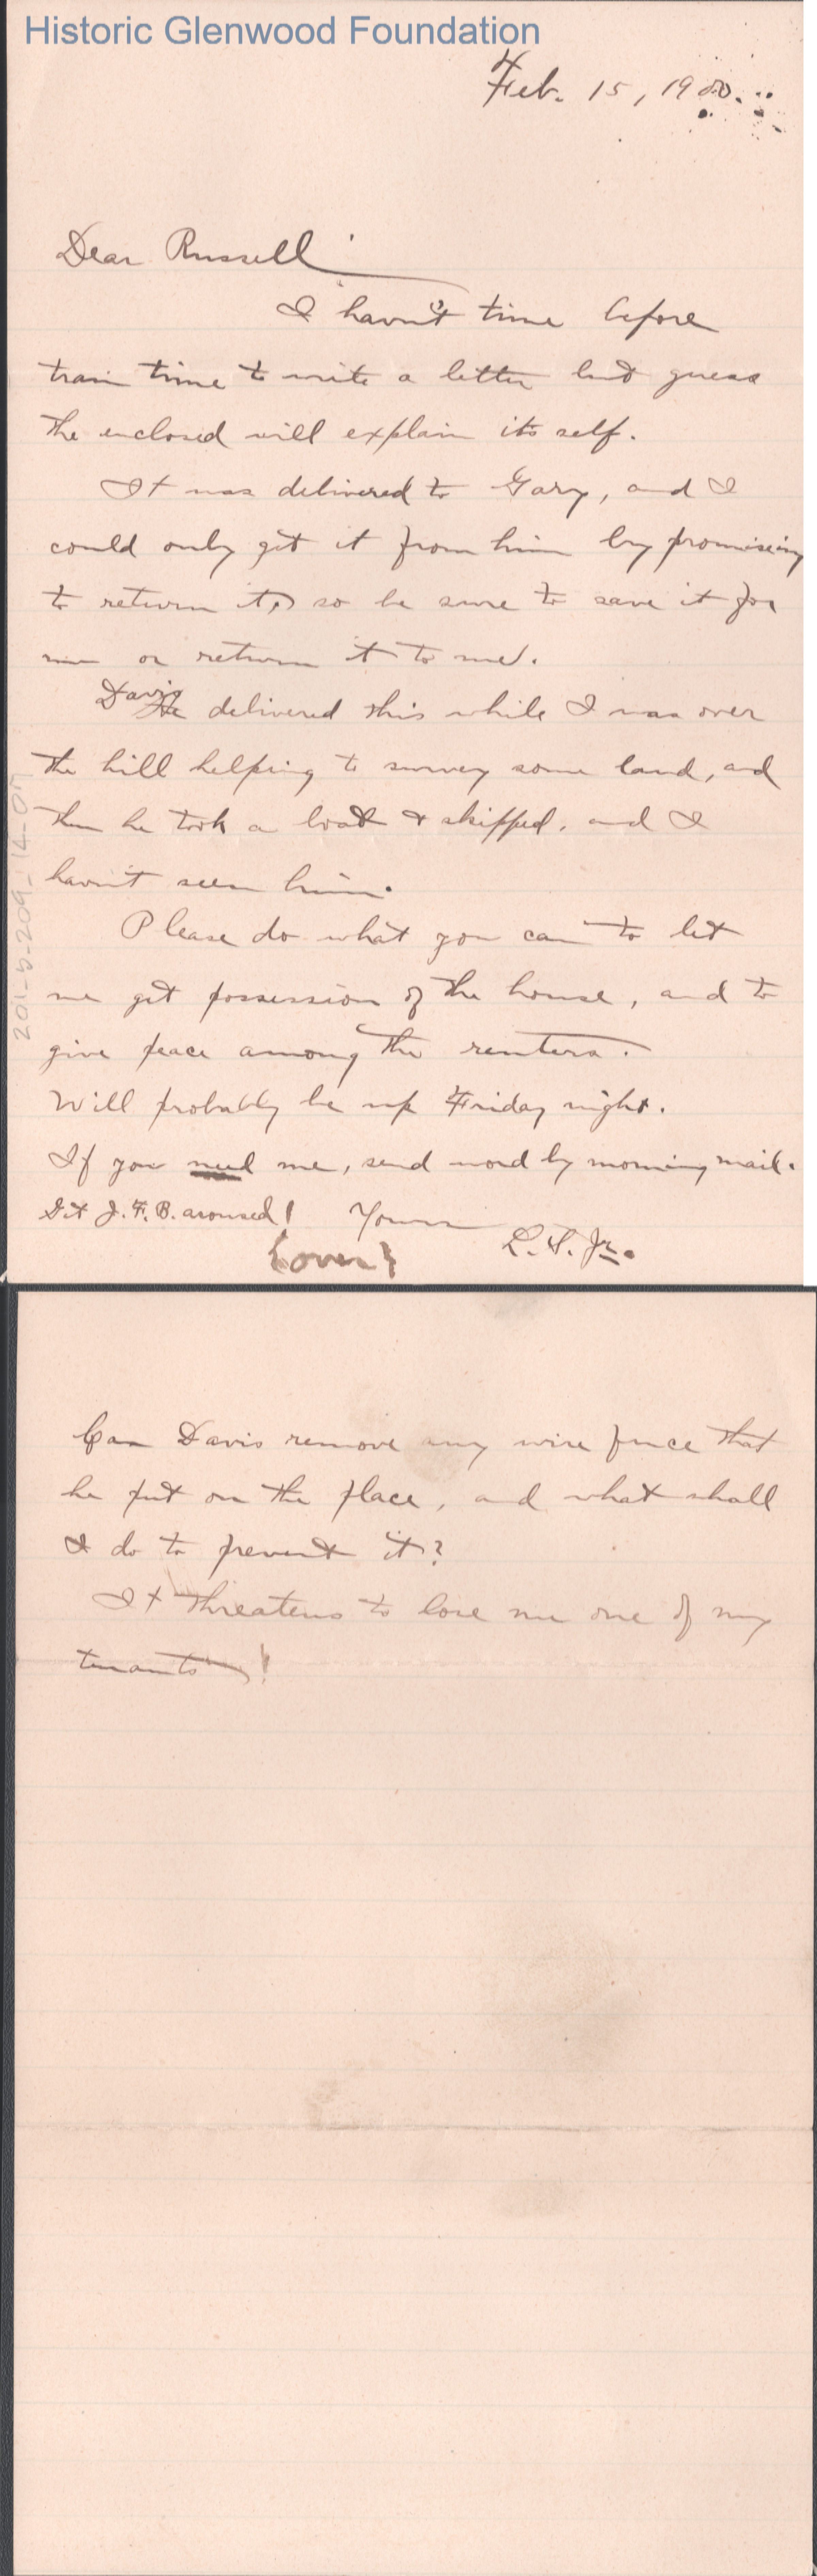 Historic Glenwood Foundation
Feb. 15, 1900.
Dear Russell
I havn't time before
train time to write a letter but guess
the enclosed will explain its self.
It was delivered to Gary, and I
could only get it from him by promiseing
to return it, so be sure to save it for
me or return it to me.
Davis
He delivered this while I was over
the hill helping to survey some land, and
then he took a boat & skipped, and I
havn't seen him.
Please do what you can to let
me get possession of the house, and to
give peace among the renters.
Will probably be up Friday night.
If you need me, send word by morning mail.
Git J.F.B. aroused! Yours
L.S. Jr.
{over}
201-b-209-14-07
Can Davis remove any wire fence that
he put on the place, and what shall
I do to prevent it?
It threatens to lose me one of my
tenants!